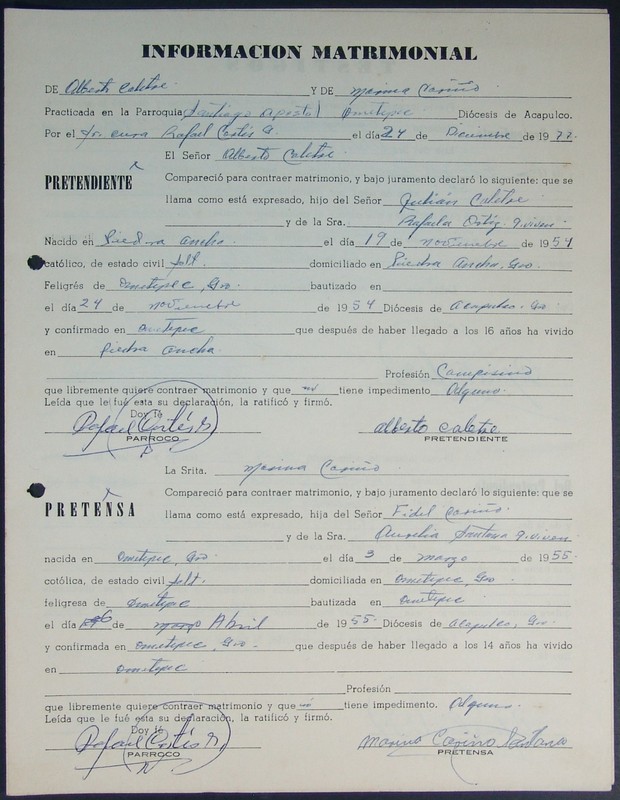 INFORMACION MATRIMONIAL
DE Alberto Caletre Y DE Marina Cariño
Practicada en la Parroquia Santiago Apostol Ometepec Diócesis de Acapulco.
Por el Sr. cura Rafael Cortés G. el día 24 de Diciembre de 1977
El Señor Alberto Caletre
PRETENDIENTE
Compareció para contraer matrimonio, y bajo juramento declaró lo siguiente: que se
llama como está expresado, hijo del Señor Julián Caletre
y de la Sra. Rafaela Ortíz q. viven
Nacido en Piedra ancha el día 19 de noviembre de 1954
católico, de estado civil solt. domiciliado en Piedra Ancha, Gro.
Feligrés de Ometepec, Gro. bautizado en
el día 24 de noviembre de 1954 Diócesis de Acapulco. Gro
y confirmado en Ometepec que después de haber llegado a los 16 años ha vivido
en Piedra Ancha.
Profesión Campisino
que libremente quiere contraer matrimonio y que no tiene impedimento Alguno.
Leída que le fué esta su declaración, la ratificó y firmó.
Doy fé
Rafael Cortés G. alberto caletre
PARROCO PRETENDIENTE
La Srita. Marina Cariño
PRETENSA
Compareció para contraer matrimonio, y bajo juramento declaró lo siguiente: que se
llama como está expresado, hija del Señor Fidel Cariño.
y de la Sra. Aurelia Santana q. viven
nacida en Ometepec, Gro el día 3 de marzo de 1955.
cotólica, de estado civil solt. domiciliada en Ometepec, Gro
feligresa de Ometepec bautizada en Ometepec
el día 6 de Abril de 1955. Diócesis de Acapulco, Gro.
y confirmada en Ometepec, Gro. que después de haber llegado a los 14 años ha vivido
en Ometepec
Profesión
que libremente quiere contraer matrimonio y que no tiene impedimento. Alguno.
Leída que le fué esta su declaración, la ratificó y firmó.
Doy fé
Rafael Cortés G. Marina Cariño Santana
PARROCO PRETENSA